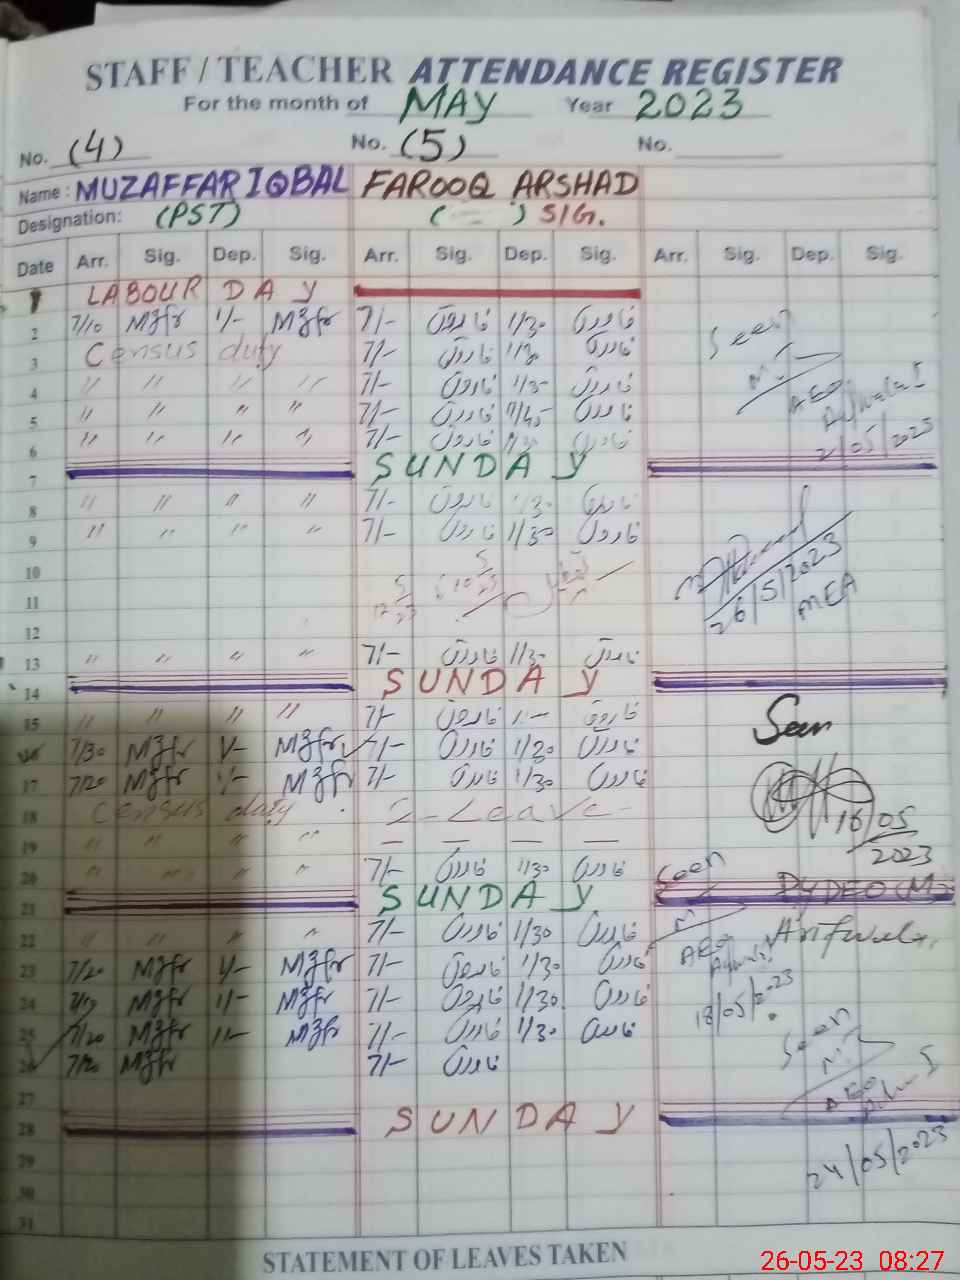 STAFF / TEACHER ATTENDANCE REGISTER
For the month of MAY Year 2023
No. (4) No. (5) No.
Name : MUZAFFAR IQBAL FAROOQ ARSHAD
Designation: (PST) ( ) SIG.
Date Arr. Sig. Dep. Sig. Arr. Sig. Dep. Sig. Arr. Sig. Dep. Sig.
1 LABOUR DAY
2 7/10 Mzfr 1/- Mzfr 7/- فاروق 1/30 فاروق Seen
3 Census duty 7/- فاروق 1/30 فاروق
4 " " " " 7/- فاروق 1/30 فاروق AEO
5 " " " " 7/- فاروق فاروق
6 " " " " 7/- فاروق فاروق 2/05/2023
7 SUNDAY
8 " " " " 7/- فاروق 1/30 فاروق
9 " " " " 7/- فاروق 1/30 فاروق
10
26/5/2023
11
MEA
12
13 " " " " 7/- فاروق 1/30 فاروق
14 SUNDAY
15 " " " " 7/- فاروق فاروق Seen
16 7/30 Mzfr 1/- Mzfr 7/- فاروق 1/30 فاروق
17 7/20 Mzfr 1/- Mzfr 7/- فاروق 1/30 فاروق
18 Census duty Leave 16/05
19 " " " " — — — — 2023
20 " " " " 7/- فاروق 1/30 فاروق Seen
21 SUNDAY Dy DEO (M)
22 " " " " 7/- فاروق 1/30 فاروق Arifwala
23 7/20 Mzfr 1/- Mzfr 7/- فاروق 1/30 فاروق AEO
24 Mzfr 1/- Mzfr 7/- فاروق 1/30 فاروق 18/05/2023
25 7/20 Mzfr 1/- Mzfr 7/- فاروق 1/30 فاروق Seen
26 7/20 Mzfr 7/- فاروق
27 AEO
28 SUNDAY
29 24/05/2023
30
31
STATEMENT OF LEAVES TAKEN
26-05-23 08:27